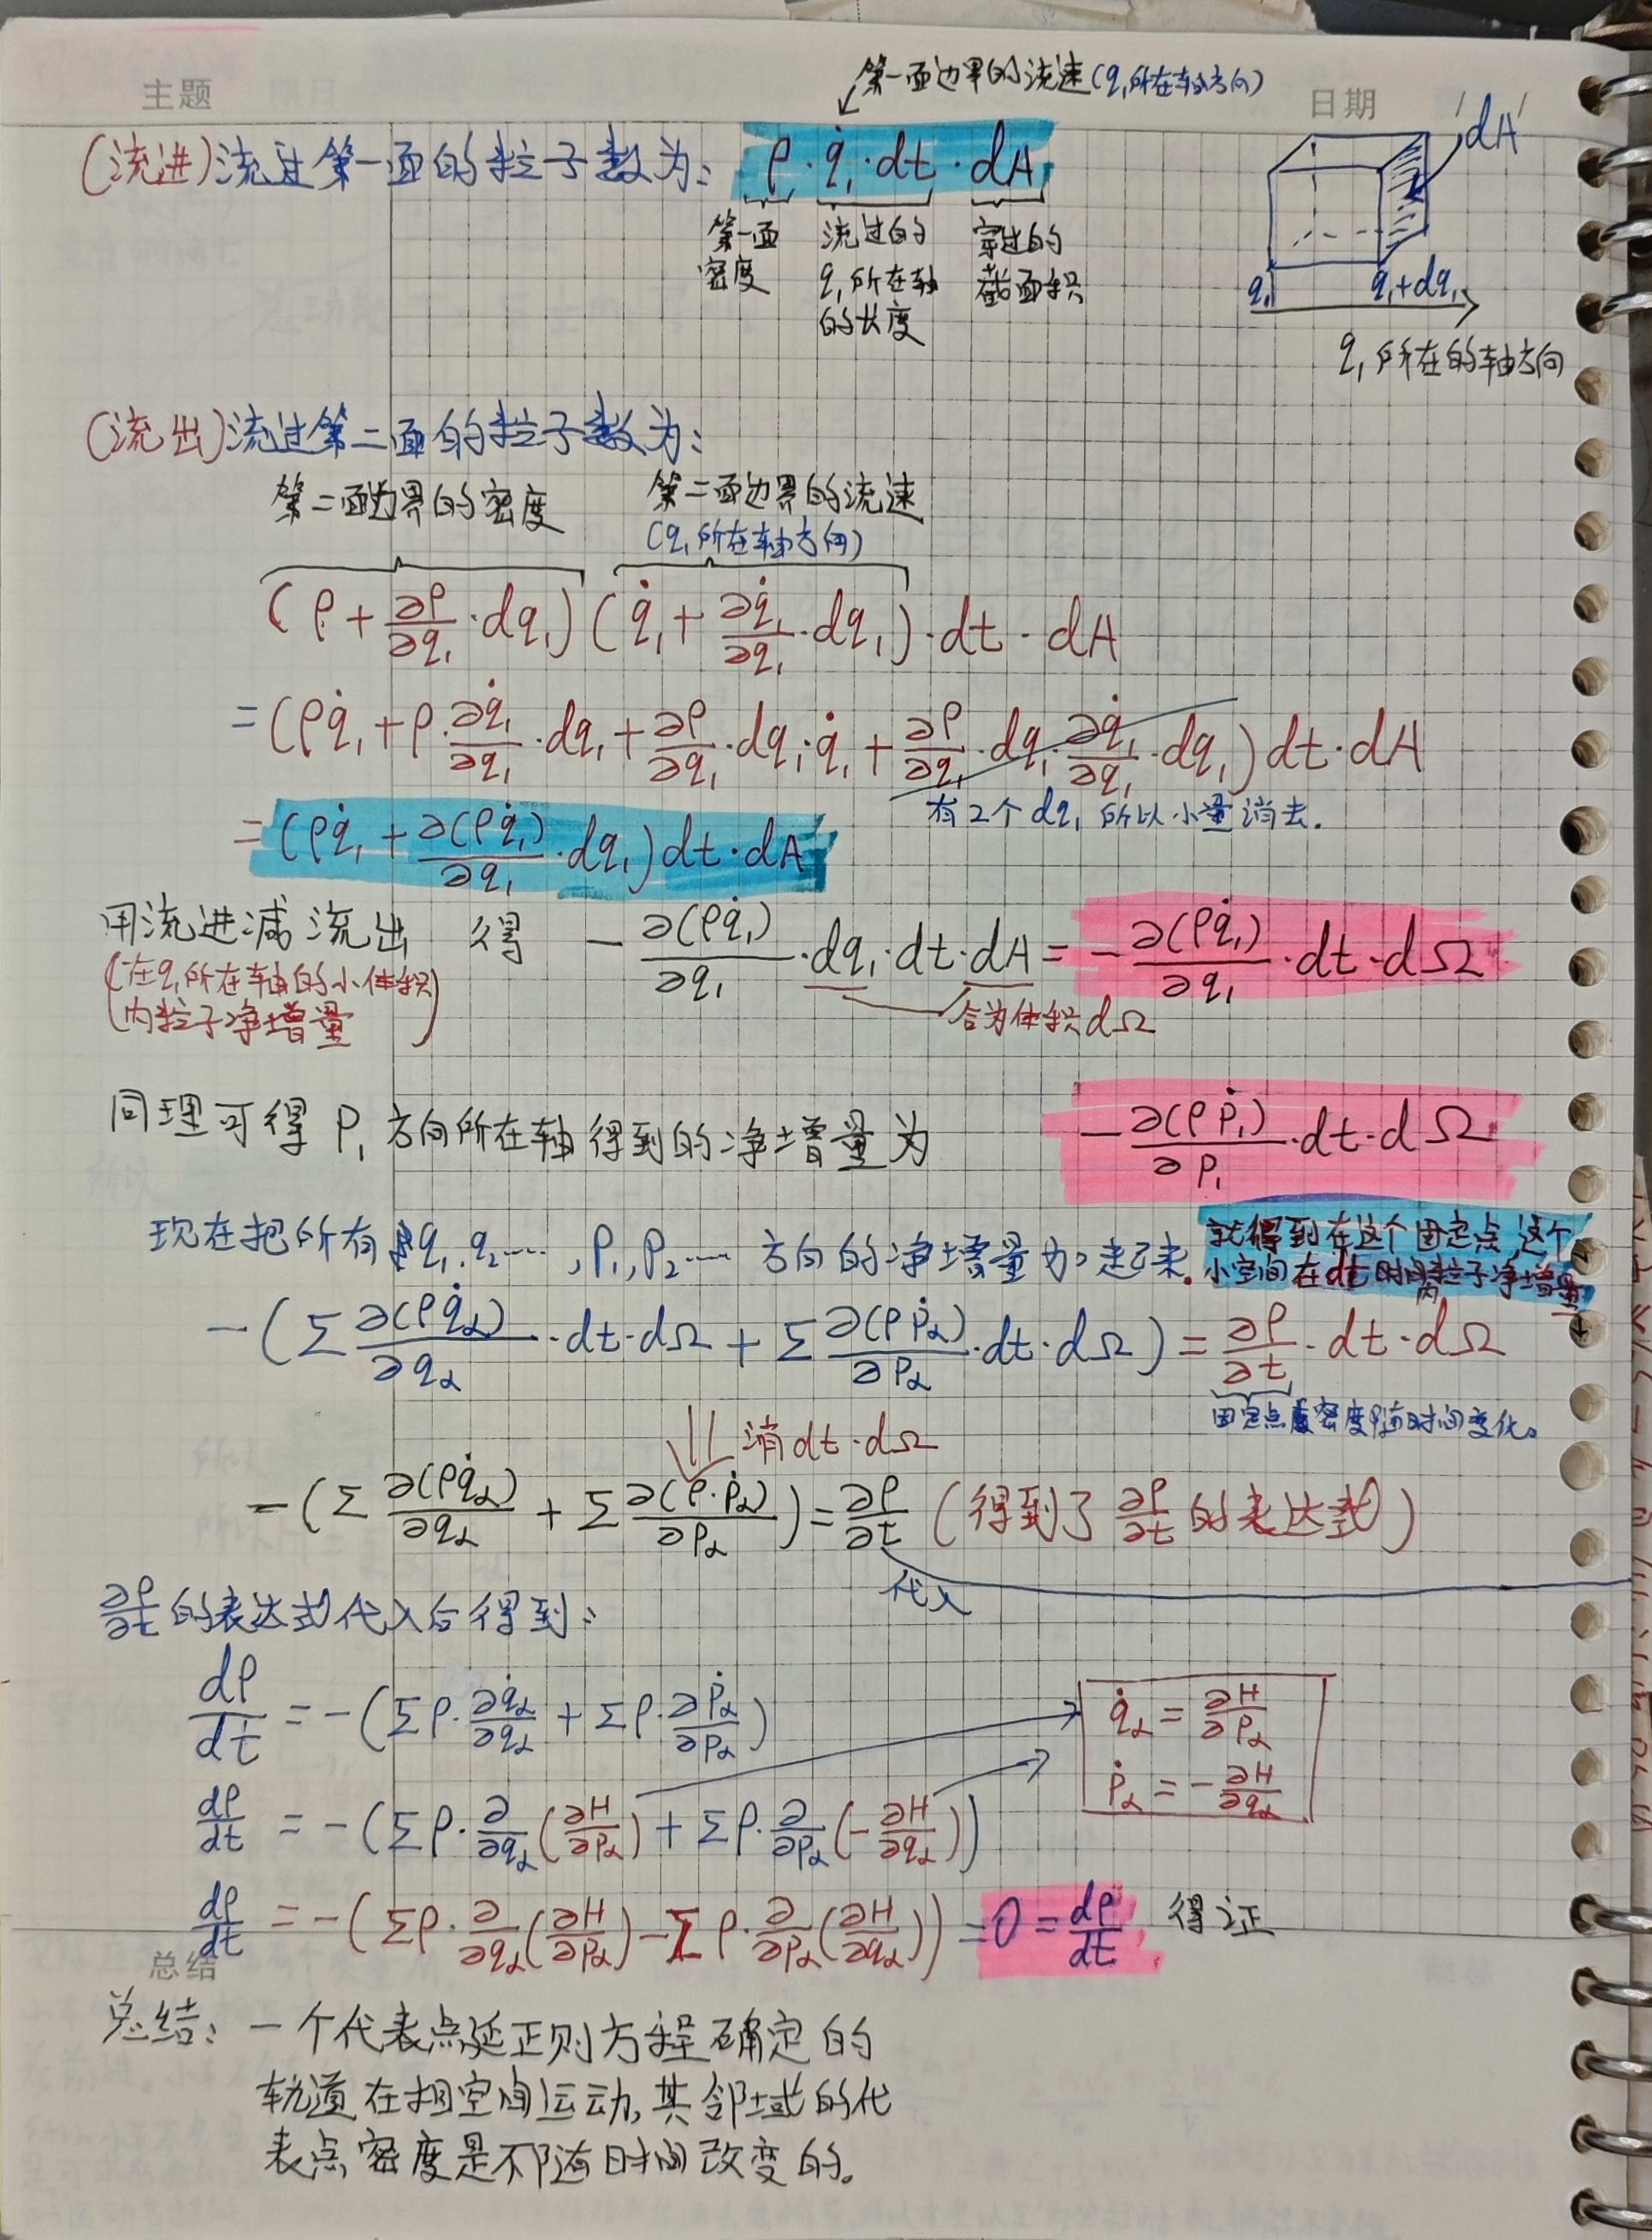 主题
日期 / /
第一面边界的流速(q₁所在轴方向)
(流进)流过第一面的粒子数为: ρ·q̇₁·dt·dA
dA
第一面密度
流过的q₁所在轴的长度
穿过的截面积
q₁ q₁+dq₁
q₁所在的轴方向
(流出)流过第二面的粒子数为:
第二面边界的密度 第二面边界的流速
(q₁所在轴方向)
(ρ+∂ρ/∂q₁·dq₁)(q̇₁+∂q̇₁/∂q₁·dq₁)·dt·dA
=(ρq̇₁+ρ·∂q̇₁/∂q₁·dq₁+∂ρ/∂q₁·dq₁·q̇₁+∂ρ/∂q₁·dq₁·∂q̇₁/∂q₁·dq₁)dt·dA
有2个dq₁所以小量消去.
=(ρq̇₁+∂(ρq̇₁)/∂q₁·dq₁)dt·dA
用流进减流出 得 -∂(ρq̇₁)/∂q₁·dq₁·dt·dA=-∂(ρq̇₁)/∂q₁·dt·dΩ
(在q₁所在轴的小体积
内粒子净增量)
合为体积dΩ
同理可得 P₁方向所在轴得到的净增量为 -∂(ρṗ₁)/∂p₁·dt·dΩ
现在把所有q₁,q₂……,P₁,P₂……方向的净增量加起来.
就得到在这个固定点,这个
小空间在dt时间内粒子净增量
-(Σ∂(ρq̇α)/∂qα·dt·dΩ+Σ∂(ρṗα)/∂pα·dt·dΩ)=∂ρ/∂t·dt·dΩ
固定点密度ρ随时间变化。
⇓消dt·dΩ
-(Σ∂(ρq̇α)/∂qα+Σ∂(ρ·ṗα)/∂pα)=∂ρ/∂t (得到了∂ρ/∂t的表达式)
代入
∂ρ/∂t的表达式代入后得到:
dρ/dt=-(Σρ·∂q̇α/∂qα+Σρ·∂ṗα/∂pα)
q̇α=∂H/∂pα
ṗα=-∂H/∂qα
dρ/dt=-(Σρ·∂/∂qα(∂H/∂pα)+Σρ·∂/∂pα(-∂H/∂qα))
dρ/dt=-(Σρ·∂/∂qα(∂H/∂pα)-Σρ·∂/∂pα(∂H/∂qα))=0=dρ/dt, 得证
总结
总结: 一个代表点延正则方程确定的
轨道在相空间运动,其邻域的代
表点密度是不随时间改变的。